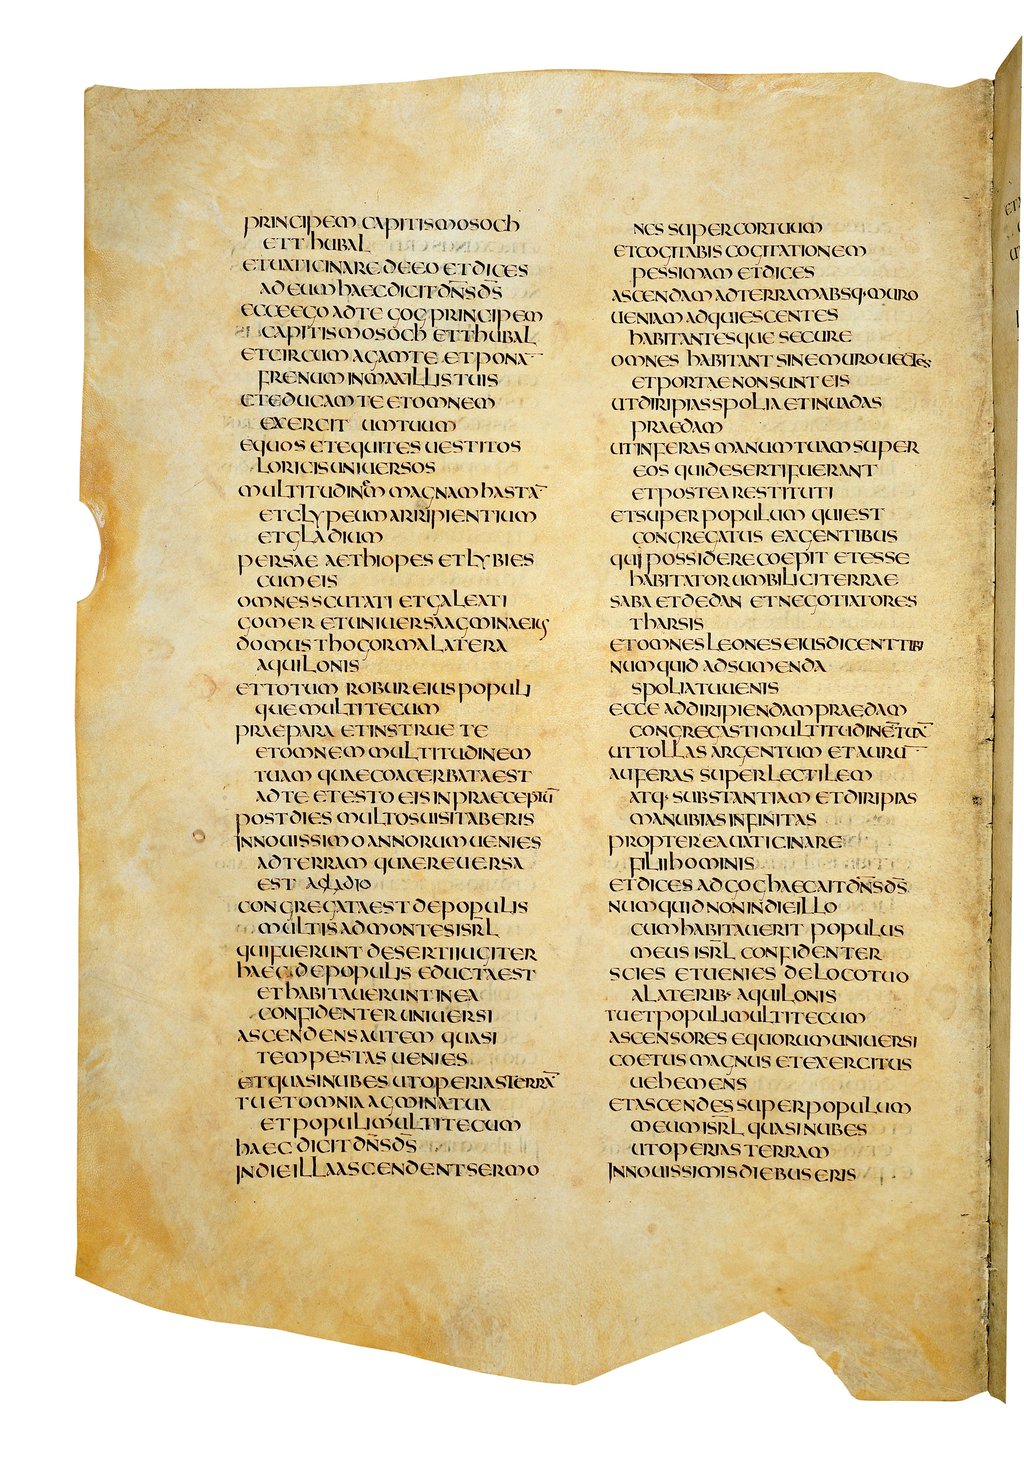 PRINCIPEM CAPITIS MOSOCH
ET THUBAL
ET UATICINARE DE EO ET DICES
AD EUM HAEC DICIT DN̄S DS̄
ECCE EGO AD TE GOG PRINCIPEM
CAPITIS MOSOCH ET THUBAL
ET CIRCUMAGAM TE ET PONĀ
FRENUM IN MAXILLIS TUIS
ET EDUCAM TE ET OMNEM
EXERCITUM TUUM
EQUOS ET EQUITES UESTITOS
LORICIS UNIUERSOS
MULTITUDINEM MAGNAM HASTĀ
ET CLYPEUM ARRIPIENTIUM
ET GLADIUM
PERSAE AETHIOPES ET LYBIES
CUM EIS
OMNES SCUTATI ET GALEATI
GOMER ET UNIUERSA AGMINA EIUS
DOMUS THOGORMA LATERA
AQUILONIS
ET TOTUM ROBUR EIUS POPULI
QUE MULTI TECUM
PRAEPARA ET INSTRUE TE
ET OMNEM MULTITUDINEM
TUAM QUAE COACERBATA EST
AD TE ET ESTO EIS IN PRAECEPTŪ
POST DIES MULTOS UISITABERIS
IN NOUISSIMO ANNORUM UENIES
AD TERRAM QUAE REUERSA
EST A GLADIO
CONGREGATA EST DE POPULIS
MULTIS AD MONTES ISRL̄
QUI FUERUNT DESERTI IUGITER
HAEC DE POPULIS EDUCTA EST
ET HABITAUERUNT IN EA
CONFIDENTER UNIUERSI
ASCENDENS AUTEM QUASI
TEMPESTAS UENIES
ET QUASI NUBES UT OPERIAS TERRĀ
TU ET OMNIA AGMINA TUA
ET POPULI MULTI TECUM
HAEC DICIT DN̄S DS̄
IN DIE ILLA ASCENDENT SERMO
NES SUPER COR TUUM
ET COGITABIS COGITATIONEM
PESSIMAM ET DICES
ASCENDAM AD TERRAM ABSQ· MURO
UENIAM AD QUIESCENTES
HABITANTESQUE SECURE
OMNES HABITANT SINE MURO UECTES
ET PORTAE NON SUNT EIS
UT DIRIPIAS SPOLIA ET INUADAS
PRAEDAM
UT INFERAS MANUM TUAM SUPER
EOS QUI DESERTI FUERANT
ET POSTEA RESTITUTI
ET SUPER POPULUM QUI EST
CONGREGATUS EX GENTIBUS
QUI POSSIDERE COEPIT ET ESSE
HABITATOR UMBILICI TERRAE
SABA ET DEDAN ET NEGOTIATORES
THARSIS
ET OMNES LEONES EIUS DICENT TIBI
NUMQUID AD SUMENDA
SPOLIA TU UENIS
ECCE AD DIRIPIENDAM PRAEDAM
CONGREGASTI MULTITUDINĒ TUĀ
UT TOLLAS ARGENTUM ET AURŪ
AUFERAS SUPERLECTILEM
ATQ· SUBSTANTIAM ET DIRIPIAS
MANUBIAS INFINITAS
PROPTEREA UATICINARE
FILI HOMINIS
ET DICES AD GOG HAEC AIT DN̄S DS̄
NUMQUID NON IN DIE ILLO
CUM HABITAUERIT POPULUS
MEUS ISRL̄ CONFIDENTER
SCIES ET UENIES DE LOCO TUO
A LATERIB· AQUILONIS
TU ET POPULI MULTI TECUM
ASCENSORES EQUORUM UNIUERSI
COETUS MAGNUS ET EXERCITUS
UEHEMENS
ET ASCENDES SUPER POPULUM
MEUM ISRL̄ QUASI NUBES
UT OPERIAS TERRAM
IN NOUISSIMIS DIEBUS ERIS